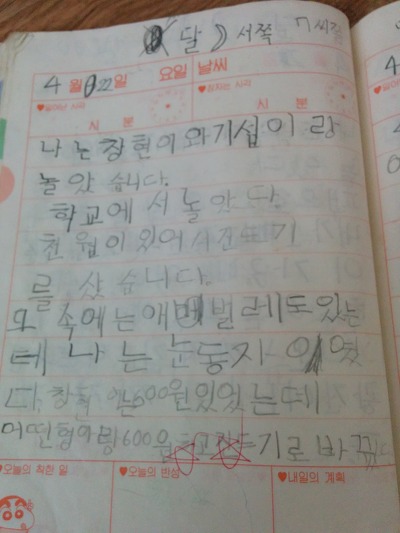 달 》 서쪽 ㄱ 씨쪽
4월 22일 요일 날씨
♥일어난 시각 ♥잠자는 시각
시 분 시 분
나는 창현이와 기섭이랑
놀았습니다.
학교에서 놀았다.
천원이 있어
를 샀습니다.
속에는 애벌레도 있는
데 나는 눈동자 이였
다 창현 600원 있었는데
어떤 형아랑 600원 기로 바꿔
♥오늘의 착한 일 ♥오늘의 반성 ♥내일의 계획